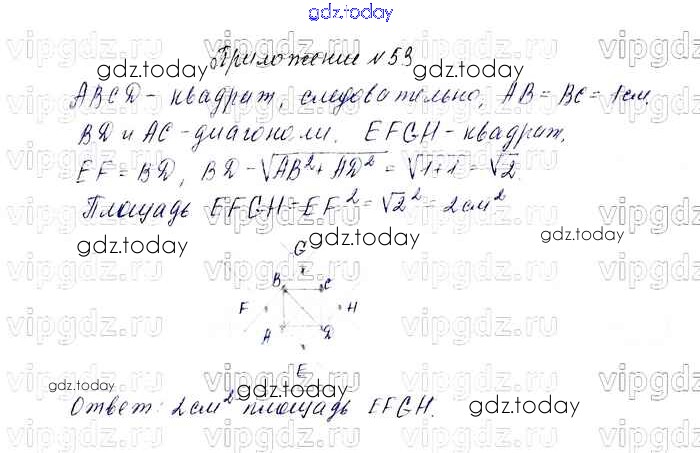 gdz.today
Приложение №53
gdz.today gdz.today
ABCD - квадрат, следовательно, AB = BC = 1 см.
BD и AC - диагонали. EFGH - квадрат,
EF = BD, BD - √AB² + AD² = √1+1 = √2.
Площадь EFGH = EF² = √2² = 2 см²
gdz.today gdz.today gdz.today
G
B C
F H
A D
E
gdz.today gdz.today gdz.today
Ответ: 2 см² площадь EFGH.
vipgdz.ru vipgdz.ru vipgdz.ru vipgdz.ru